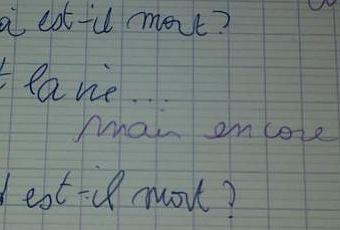 à est-il mort?
la vie...
mais encore
est-il mort?